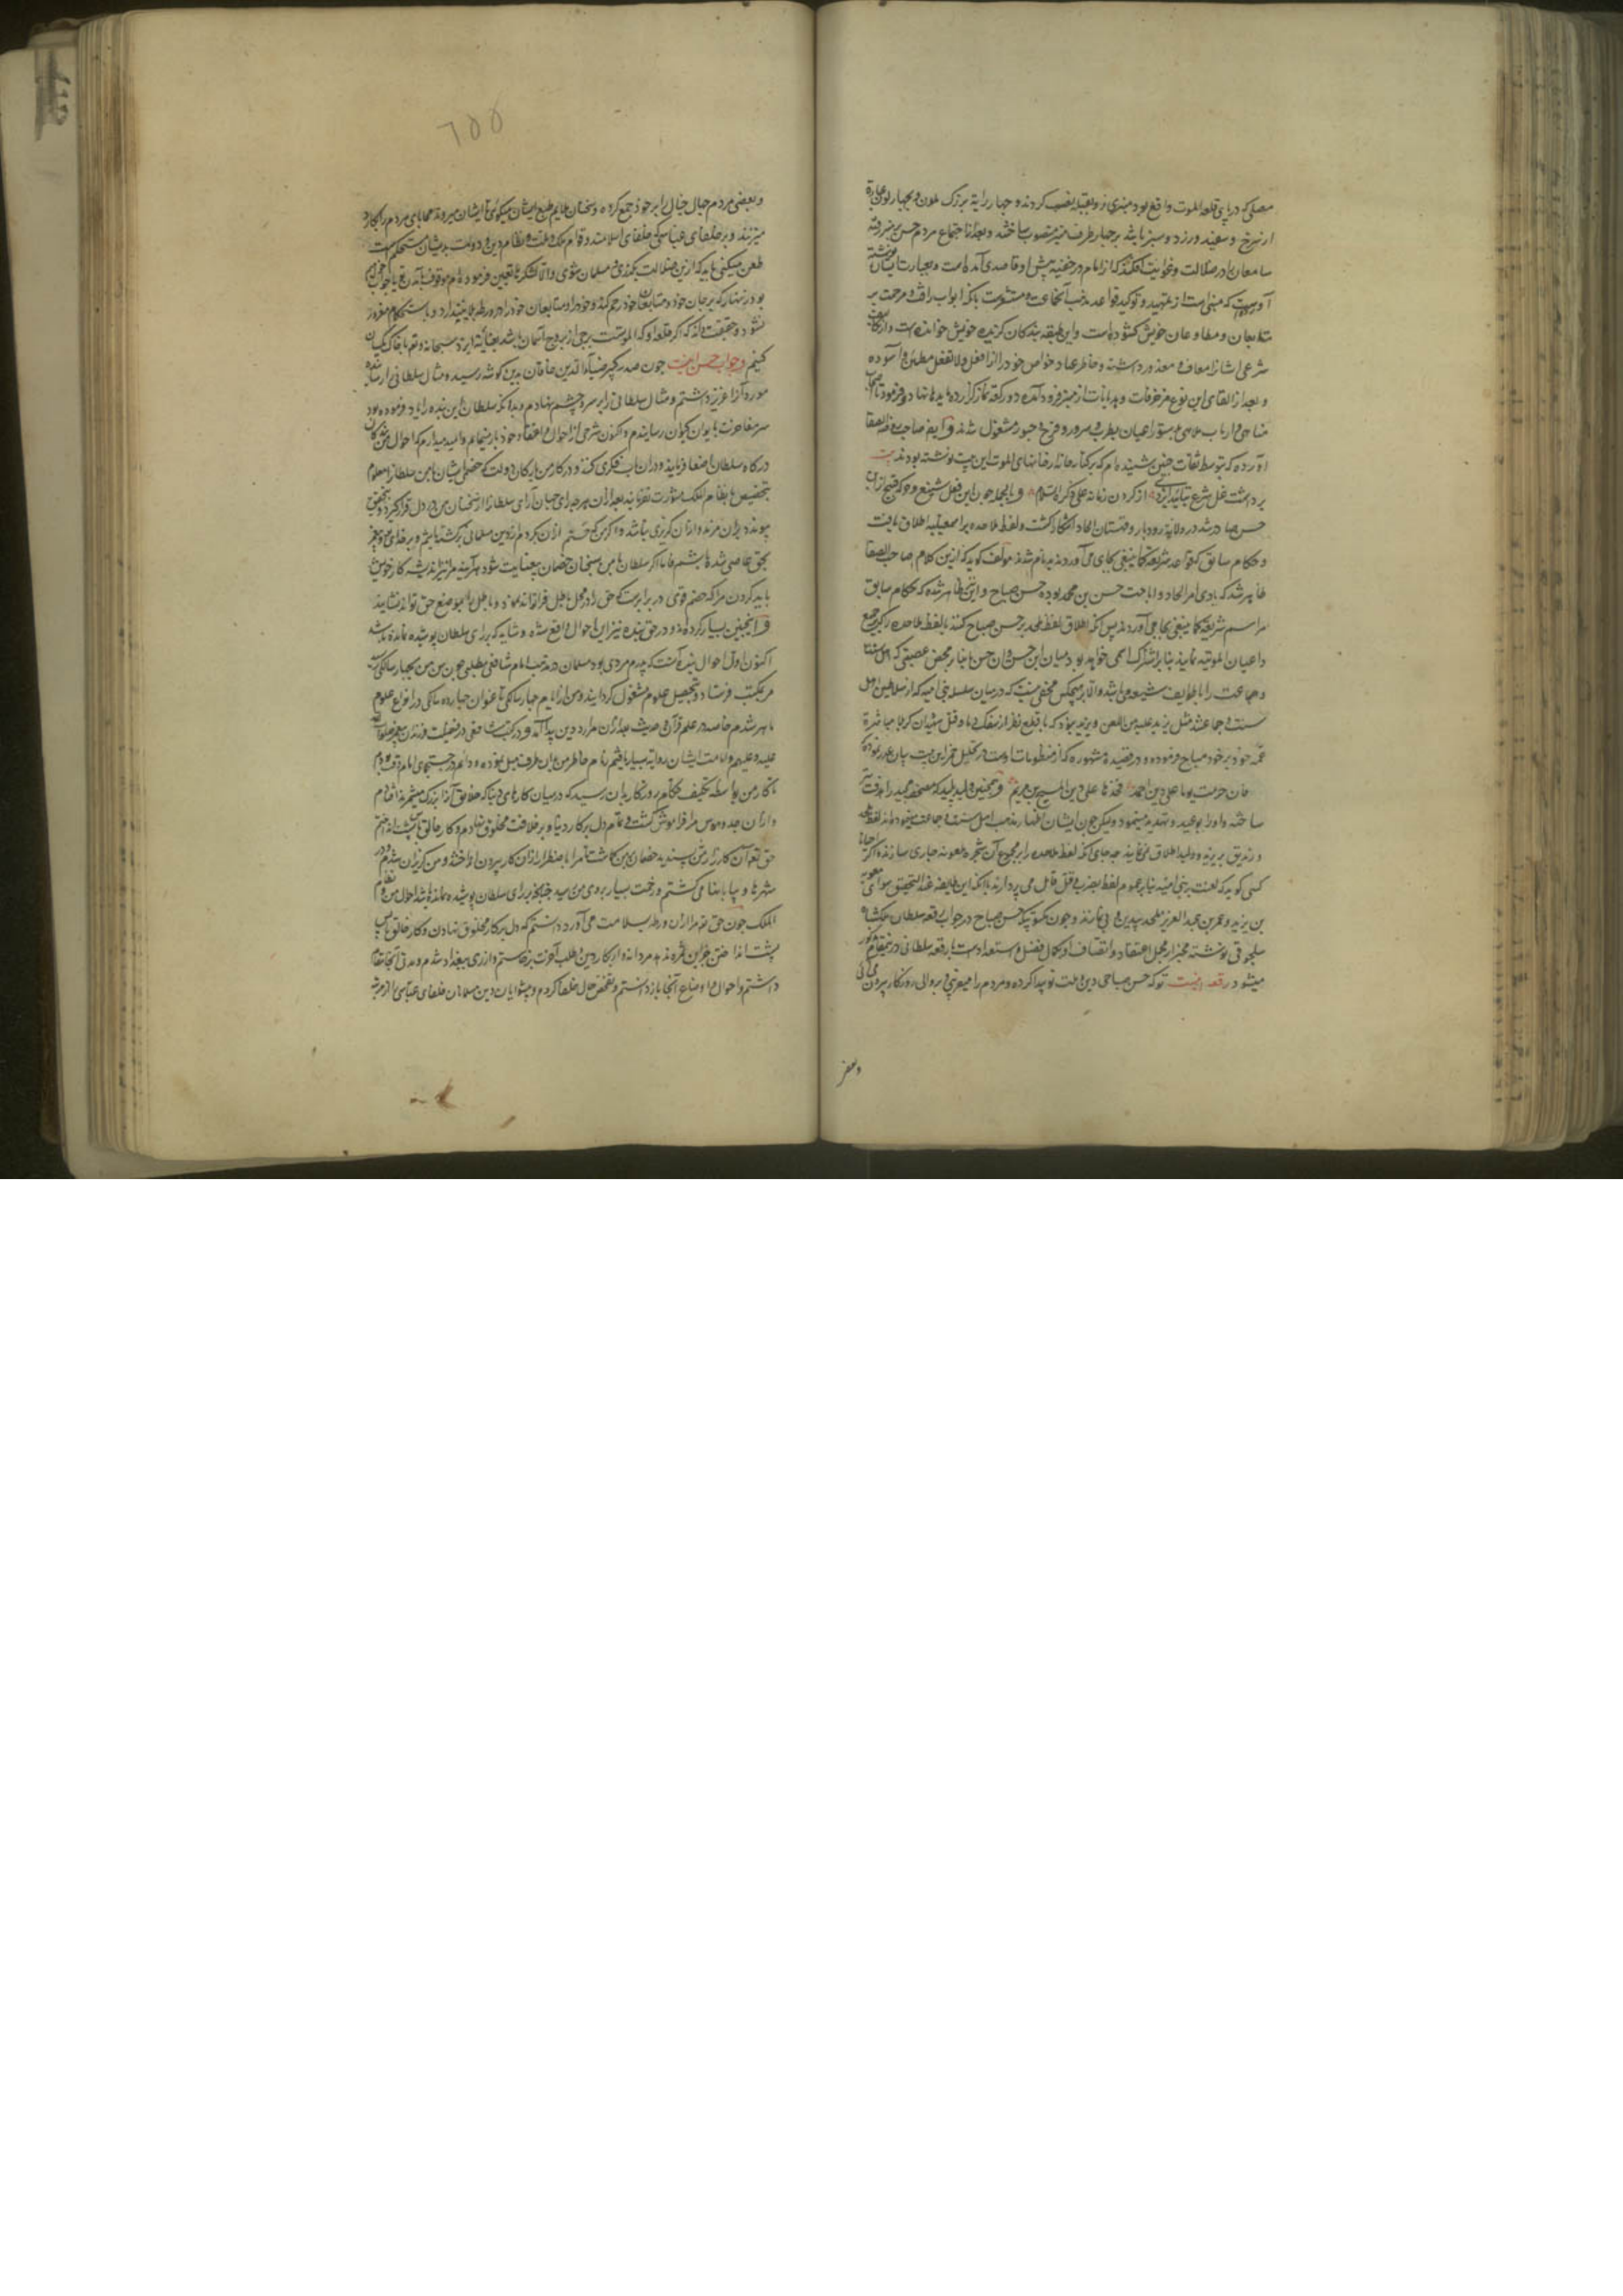 مصلی که در پای قلعه الموت واقع بود منبری رو بقبله نصب کردند و چهار رایة بزرک ملون بچهار لون عبارة
از سرخ و سفید و زرد و سبز باشد بر چهار طرف منبر منصوب ساختند و بعد از اجتماع مردم حسن بر منبر رفته
سامعانرا در ضلالت و غوایت افکند که از امام در خفیه پیش او قاصدی آمده است و بعبارت ایشان نوشته
آورده است که مبنی است از تمهید و توکید قواعد مذهب آنجماعت و مشعرست بانک ابواب رافت و مرحمت بر
متابعان و مطاوعان خویش کشوده است و این طبقه بندکان کزیده خویش خوانده است و از تکالیف
شرعی ایشانرا معاف و معذور داشته و خاطر عباد خواص خود را از افعل و لا تفعل مطمئن و آسوده
و بعد از القای این نوع مزخرفات و هذیانات از منبر فرود آمده دو رکعة نماز کزارده مایدها نهاد و فرمود تا اصحاب
مناهی و ارباب ملاهی بدستور اعیان بطرب و سرور و فرح و حبور مشغول شدند و ایضا صاحب روضة الصفا
آورده که بتوسط ثقات چنین شنیده‌ام که بر کنار خانه رضانهای الموت این بیت نوشته بودند بیت
برداشت غل شرع بتایید ایزدی از کردن زمانه علی ذکره السلام و بالجمله چون این فعل شنیع وجود قبیح از این
حسن صادر شد در ولایة رودبار و قهستان الحاد آشکارا کشت و لفظ ملاحده بر اسمعیلیه اطلاق یافت
و حکام سابق که قواعد شریعة کما ینبغی بجای می‌آوردند بدنام شدند مولف کوید که از این کلام صاحب روضة الصفا
ظاهر شد که بادی امر الحاد و اباحت حسن بن محمد بوده نه حسن صباح و این نیز ظاهر شد که حکام سابق
مراسم شریعة کما ینبغی بجا می‌آوردند پس آنکه اطلاق لفظ ملحد بر حسن صباح کنند یا لفظ ملاحده را بر جمیع
داعیان الموتیه نمایند بنابر اشتراک اسمی خواهد بود میان این حسن و آن حسن یا بنابر محض عصبیتی که اهل سنت
و جماعت را با طوایف شیعه می‌باشد و الا بر هیچکس مخفی نیست که در میان سلسله بنی امیه که از سلاطین اهل
سنت و جماعتند مثل یزید علیه من اللعن ویزید بوده که با قطع نظر از سفک دما و قتل شهیدان کربلا مباشرة
عمه خود بر خود مباح فرموده و در قصیدة مشهوره که از منظومات اوست در تحلیل خمر این بیت بیان عذر نموده
فان حرمت یوما علی دین احمد فخذها علی دین المسیح بن مریم و همچنین ولید پلید که مصحف مجید را هدف تیر
ساخته و او را بوعید و تهدید مینمود ولیکن چون ایشان اظهار مذهب اهل سنت و جماعت مینموده‌اند لفظ ملحد
و زندیق بر یزید و ولید اطلاق نمی‌نمایند چه جای آنکه لفظ ملاحده را بر مجموع آن شجره ملعونه جاری سازند و اگر احیانا
کسی کوید که لعنت بر بنی امیه بنابر عموم لفظ بضرب و قتل قایل می‌پردازند با آنکه این طایفه عند التحقیق سوای معویه
بن یزید و عمر بن عبد العزیز ملحد بیدین و بی‌نمازند و چون مکتوبیکه حسن صباح در جواب رقعه سلطان ملکشاه
سلجوقی نوشته مخبر از مجمل اعتقاد و اتصاف او بکمال فضل و استعدادست با رقعه سلطانی درینمقام مذکور
میشود رقعه اینست تو که حسن صباحی دین و ملت نو پیدا کرده و مردم را میفریبی و بر والی روزکار بیرون می‌آئی
وبعض
۲۵۵
و بعضی مردم جهال جبال را بر خود جمع کرده و سخنان ملایم طبع ایشان میکوئی تا ایشان میروند و محابا مردم را بکارد
میزنند و بر خلفای عباسی که خلفای اسلامند و قوام ملک و ملت و نظام دین و دولت بدیشان مستحکم است
طعن میکنی باید که ازین ضلالت بکذری و مسلمان شوی و الا لشکرها تعیین فرموده‌ام موقوف بآمدن تو یا جواب خواندن
بود زنهار که بر جان خود و متابعان خود رحم کند و خود را و متابعان خود را در ورطه هلاک نیندازد و باستحکام قلعه مغرور
نشود و بحقیقت داند که اگر قلعه او که الموتست برجی از بروج آسمان باشد بعنایة ایزد سبحانه و تعالی با خاک یکسان
کنیم و جواب حسن اینست چون صدر کبیر ضیاء الدین خاقان بدین کوشه رسید و مثال سلطانی را رسانیده
مورد آنرا عزیز داشتم و مثال سلطانی را بر سر و چشم نهادم و بدانکه سلطان این بنده را یاد فرموده بود
سر مفاخرت بایوان کیوان رسانیدم و اکنون شرحی از احوال و اعتقاد خود باز مینمایم و امید میدارم که احوال من بندکان
درکاه سلطان اصغا فرمایند و در آن باب فکری کنند و در کار من با ارکان دولت که خصمی ایشان با من سلطانرا معلوم
بتخصیص با نظام الملک مشورت نفرمایند بعد از آن هر چه رای جهان آرای سلطانرا از سخنان من در دل قرار کیرد و بتحقیق
پیوندد بران مزید و از آن کریزی نباشد و اگر من که حسنم ازان بکردم از دین مسلمانی برکشته باشم و بر خدای و پیغمبر
بحق عاصی شده باشم فاما اگر سلطان با من بسخنان خصمان بیعنایت شود هرآینه مرا نیز اندیشه کار خویش
باید کردن مرا که خصم قوی در برابرست که حق را در محل باطل فرا تواند نمود و باطل را بموضع حق تواند نشانید
و اینچنین بسیار کرده‌اند و در حق بنده نیز این احوال واقع شده و شاید که بر رای سلطان پوشیده نمانده باشد
اکنون اول احوال بنده آنست که پدرم مردی بود مسلمان در مذهب امام شافعی مطلبی چون سن من بچهار سالکی رسید
مرا بمکتب فرستاد و بتحصیل علوم مشغول کردانید و من از ایام چهار سالکی تا عنوان چهارده سالکی در انواع علوم
ماهر شدم خاصه در علم قرآن و حدیث بعد از آن مرا درد دین پیدا آمد و در کتب شافعی در فضیلت فرزندان پیغمبر صلوات الله
علیه و علیهم و امامت ایشان روایة بسیار یافتم تمام خاطر من بدان طرف میل نموده و دایم در جستجوی امام وقت بودم
تا کار من بواسطه تکلیف حکام روزکار بدان رسید که در میان کارهای دنیا که خلایق آنرا بزرک میشمرند افتادم
و از آن جد و هوس مرا فراموش کشت و تمام دل بر کار دنیا و بر خلافت مخلوق نهادم و کار خالق با پس پشت انداختم
حق تعالی آن کار را از من نپسندید خصمان بر من کماشت تا مرا باضطرار از آن کار بیرون انداختند و من کریزان شدم و در
شهرها و بیابانها می‌کشتم و زحمت بسیار بروی من رسید چنانچه بر رای سلطان پوشیده نمانده باشد احوال من و نظام
الملک چون حق تعالی مرا از آن ورطه بسلامت می‌آورد دانستم که دل بر کار مخلوق نهادن و کار خالق با پس
پشت انداختن جز این ثمره ندهد مردانه وار بکار دین و طلب آخرت برخاستم و از ری ببغداد شدم و مدتی آنجا مقام
داشتم و احوال و اوضاع آنجا باز دانستم و تفحص حال خلفا کردم و پیشوایان دین مسلمانان خلفای عباسی را از مرتبه